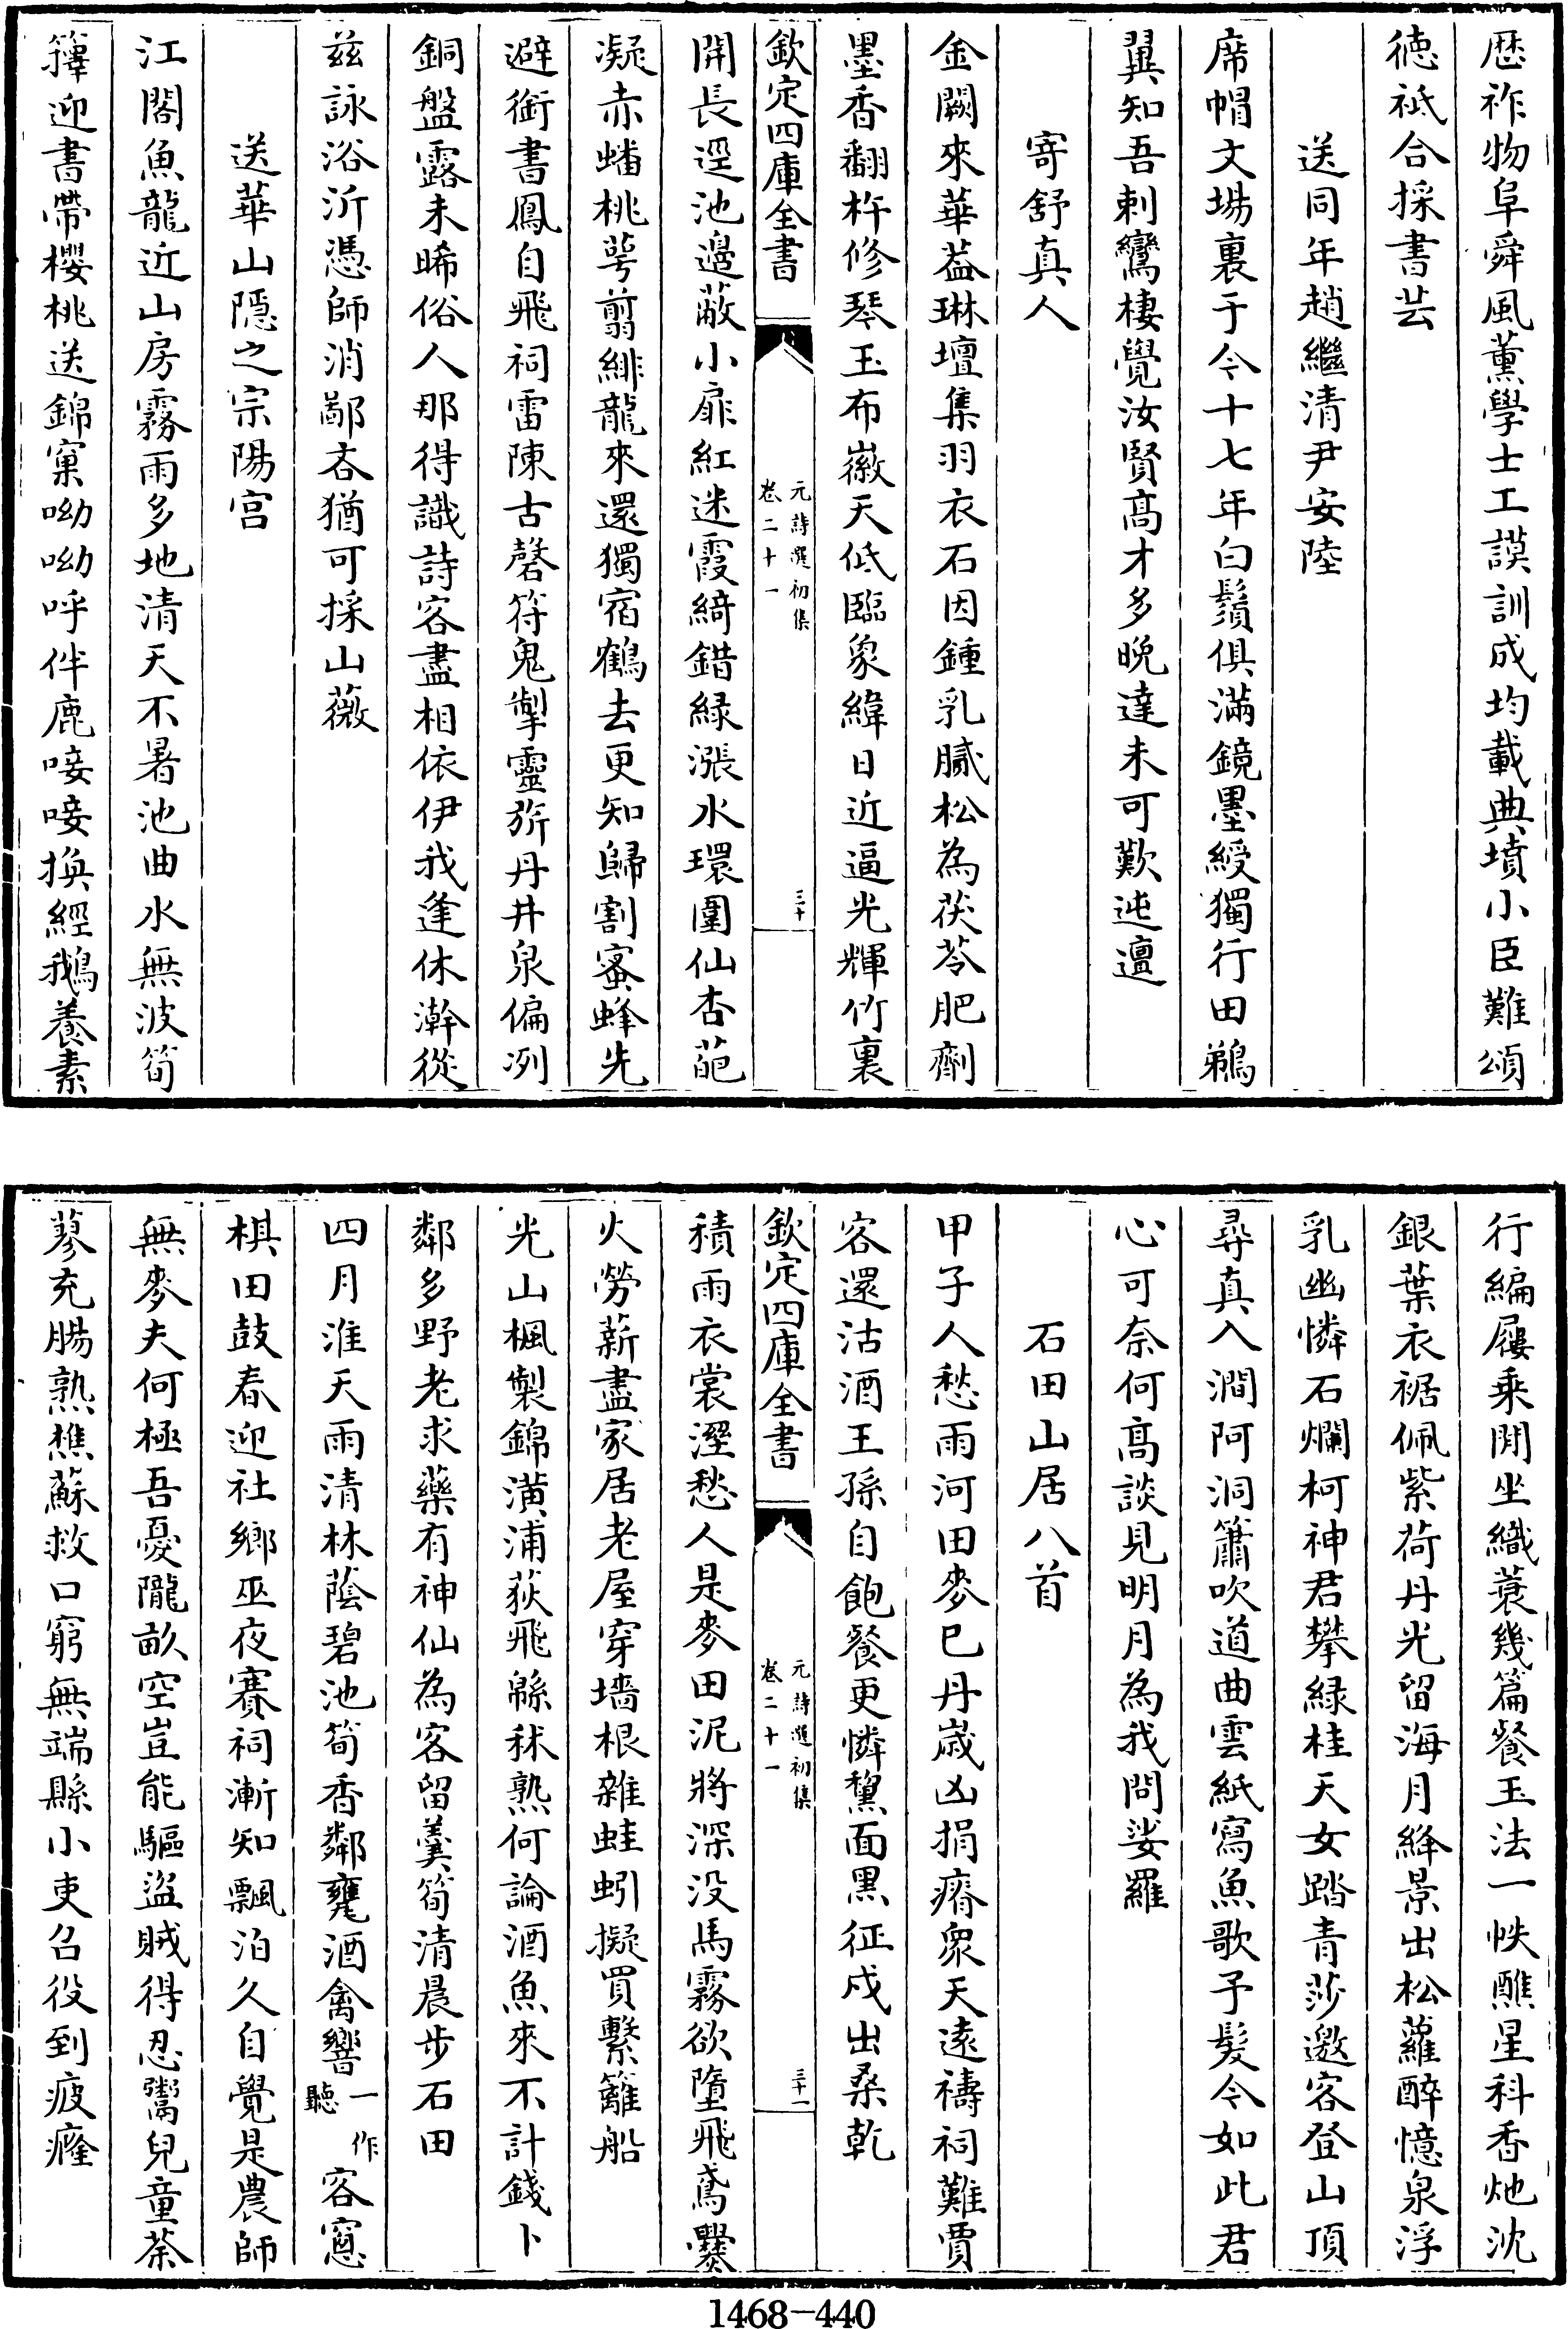 歴祚物阜舜風薫學士工謨訓成均載典墳小臣難頌
徳祗合採書芸
送同年趙繼清尹安陸
席帽文場裏于今十七年白鬚俱滿鏡墨綬獨行田鵜
翼知吾刺鸞棲覺汝賢髙才多晚達未可歎迍邅
寄舒真人
金闕來華葢琳壇集羽衣石因鍾乳膩松為茯苓肥劑
墨香翻杵修琴玉布徽天低臨象緯日近逼光輝竹裏
欽定四庫全書
元詩選初集
卷二十一
三十
開長逕池邉蔽小扉紅迷霞綺錯緑漲水環圍仙杏葩
凝赤蟠桃萼翦緋龍來還獨宿鶴去更知歸割蜜蜂先
避銜書鳳自飛祠雷陳古磬符鬼掣靈旂丹井泉偏冽
銅盤露未晞俗人那得識詩客盡相依伊我逢休澣從
兹詠浴沂憑師消鄙吝猶可採山薇
送華山隠之宗陽宫
江閣魚龍近山房霧雨多地清天不暑池曲水無波筍
籜迎書帶櫻桃送錦窠呦呦呼伴鹿唼唼換經鵝養素
行編屨乗閒坐織蓑幾篇餐玉法一帙醮星科香灺沈
銀葉衣裾佩紫荷丹光留海月絳景出松蘿醉憶泉浮
乳幽憐石爛柯神君攀緑桂天女踏青莎邀客登山頂
尋真入澗阿洞簫吹道曲雲紙寫魚歌予髪令如此君
心可奈何髙談見明月為我問娑羅
石田山居八首
甲子人愁雨河田麥已丹歳凶捐瘠衆天逺禱祠難賈
客還沽酒王孫自飽餐更憐黧面黒征戍出桑乾
欽定四庫全書
元詩選初集
卷二十一
三十一
積雨衣裳溼愁人是麥田泥將深没馬霧欲墮飛鳶爨
火勞薪盡家居老屋穿墻根雜蛙蚓擬買繫籬船
光山楓製錦潢浦荻飛緜秫熟何論酒魚來不計錢卜
鄰多野老求藥有神仙為客留羮筍清晨步石田
四月淮天雨清林蔭碧池筍香鄰甕酒禽響一作聽客窓
棋田鼓春迎社鄉巫夜賽祠漸知飄泊久自覺是農師
無麥夫何極吾憂隴畝空豈能驅盜賊得忍鬻兒童荼
蓼充腸熟樵蘇救口窮無端縣小吏召役到疲癃
1468-440